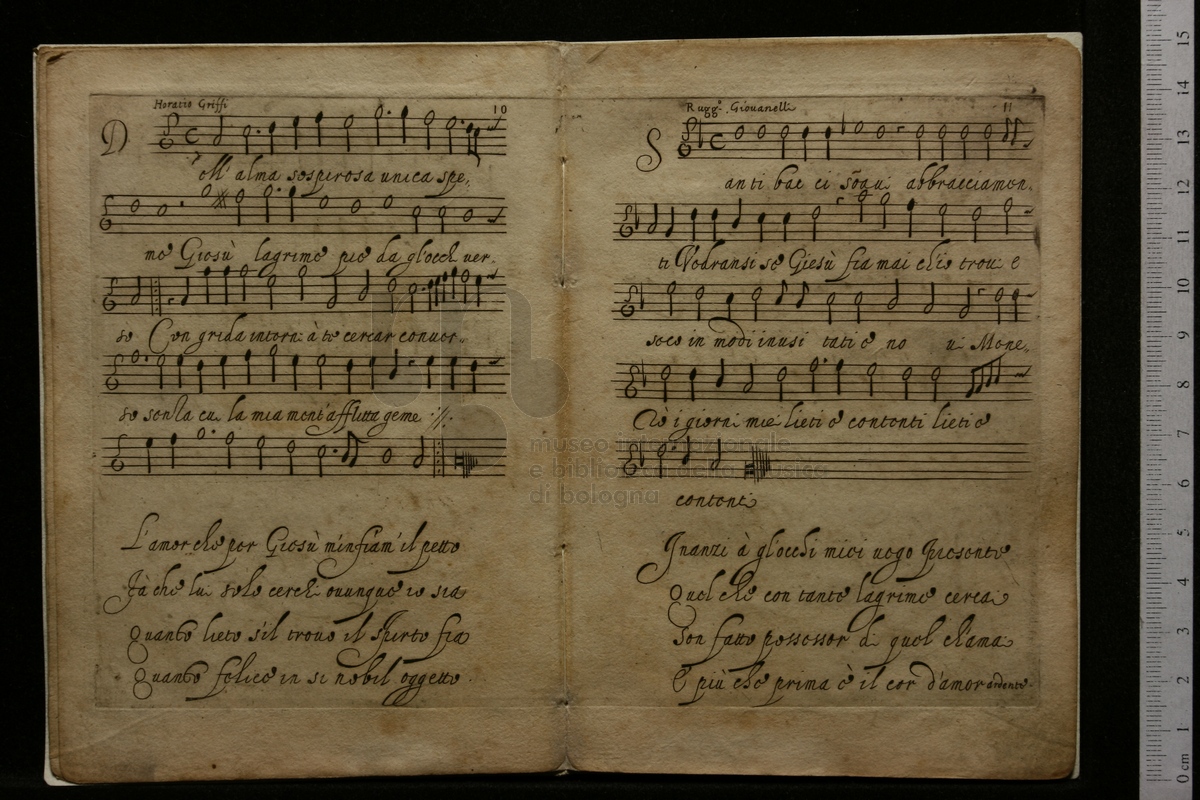 Horatio Griffi
10
D
oll' alma sospirosa unica spe,
me Giesù lagrime pie da gl'occh ver.
so Con grida intorn à te cercar conver.
so la mia mont' afflitta geme :/:
L'amor che per Giesù m'infiam' il petto
Fà che lui solo cerch ovunque io sia
Quanto lieto s'il trovo il spirto fia
Quanto felice in si nobil oggetto.
Rugg.º Giovanelli
11
S
anti bac ci sōaui abbracciamen.
ti Vedransi se Giesù fia mai ch'io trou e
soco in modi inusi tati e no ui Mone.
Ciò i giorni miei lieti e contenti lieti e
contenti
Inanzi à gl'occhi miei vego presente
Quel che con tante lagrime cercai
Son fatto possessor di quel ch'amai
E più che prima è il cor d'amor ardente.
museo internazionale
e biblioteca della musica
di bologna
15
14
13
12
11
10
9
8
7
6
5
4
3
2
1
0 cm